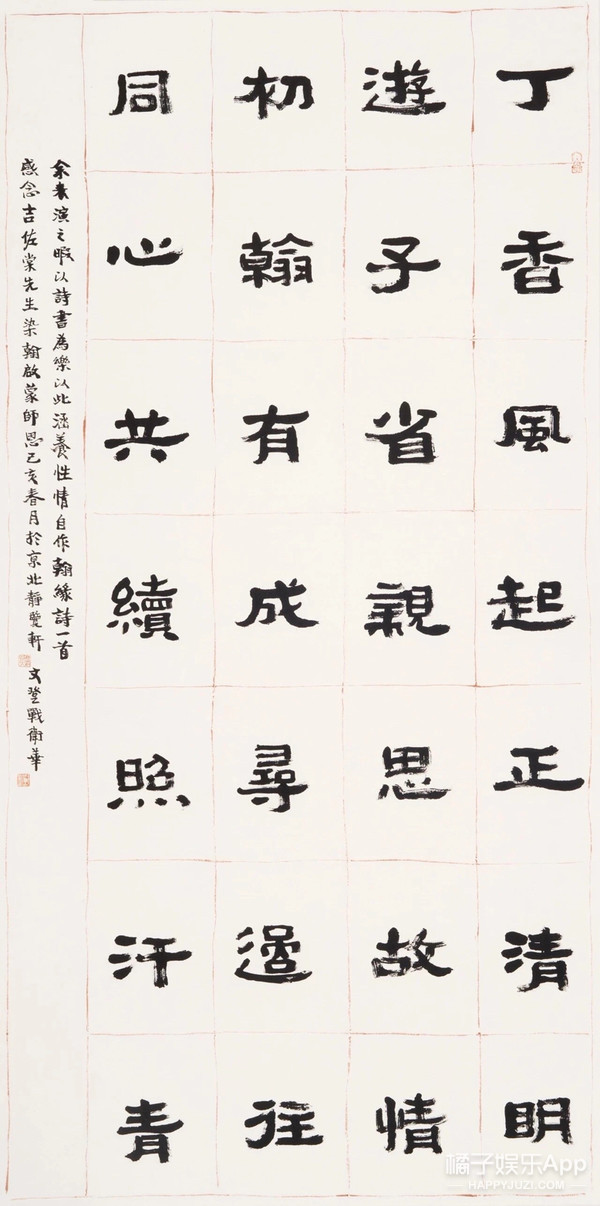 丁香風起正清明
遊子省親思故情
初翰有成尋過往
同心共續照汗青
余表演之暇以詩書為樂以此涵養性情自作翰緣詩一首
感念吉佐棠先生染翰啟蒙師恩己亥春月於京北靜軒 文登戰衛華
橘子娱乐App
HAPPYJUZI.COM